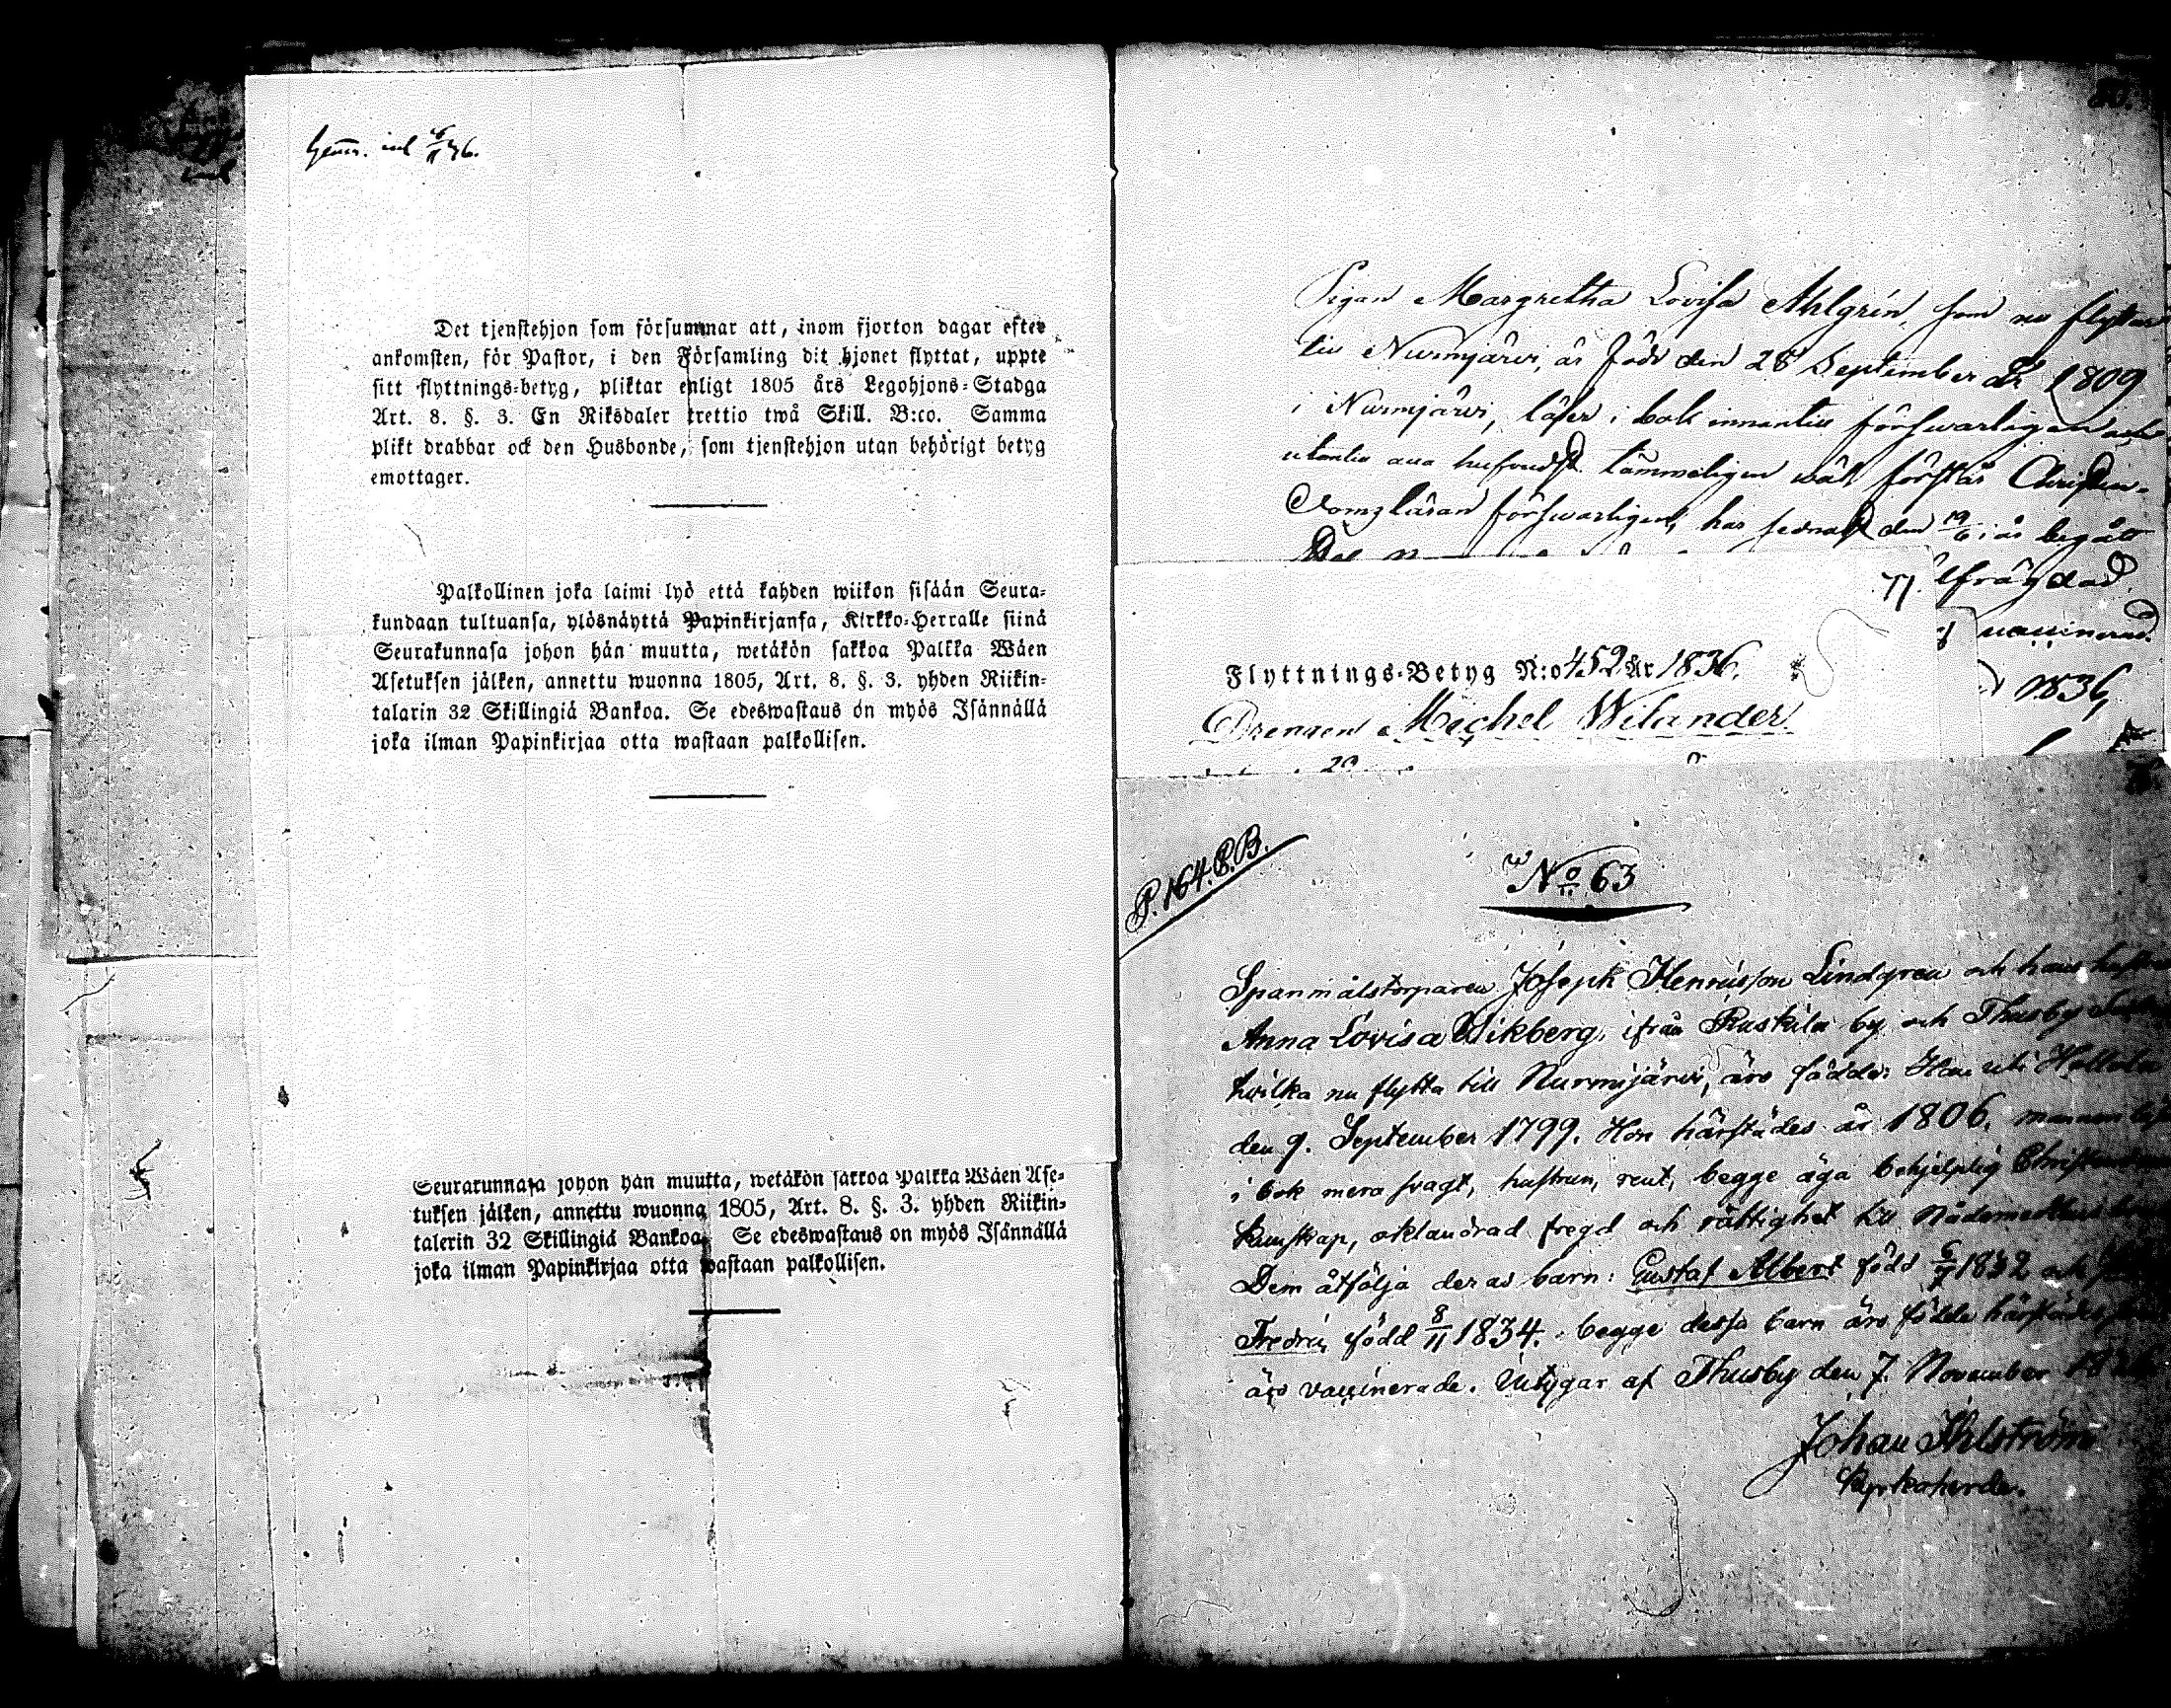 inl 6/11 36.
Det tjenstehjon som försummar att, inom fjorton dagar efter
ankomsten, för Pastor, i den Församling dit hjonet flyttat, uppte
sitt flyttnings-betyg, pliktar enligt 1805 års Legohjons-Stadga
Art. 8. §. 3. En Riksdaler trettio twå Skill. B:co. Samma
plikt drabbar ock den Husbonde, som tjenstehjon utan behörigt betyg
emottager.
Palkollinen joka laimi lyö että kahden wiikon sisään Seura-
kundaan tultuansa, ylösnäyttä Papinkirjansa, Kirkko-Herralle siinä
Seurakunnasa johon hän muutta, wetäkön sakkoa Palkka Wäen
Asetuksen jälken, annettu wuonna 1805, Art. 8. §. 3. yhden Riikin-
talarin 32 Skillingiä Bankoa. Se edeswastaus on myös Isännällä
joka ilman Papinkirjaa otta wastaan palkollisen.
Seurakunnasa johon hän muutta, wetäkön sakkoa Palkka Wäen Ase-
tuksen jälken, annettu wuonna 1805, Art. 8. §. 3. yhden Riikin-
talerin 32 Skillingiä Bankoa. Se edeswastaus on myös Isännällä
joka ilman Papinkirjaa otta wastaan palkollisen.
Pigan Margretha Lovisa Ahlgrén, som nu flyttar
till Nurmjärvi, är född den 28 September år 1809
i Nurmjärvi, läser i bok innantill försvarligen och
utantill sina hufvudst. tämmeligen wäl, förstår Christen-
domsläran försvarligen, har sednast den 19/6 i år begått
frägdad
vaccinerad.
1836
Flyttnings-Betyg N:o 452 År 1836.
Drengen Michel Wilander
P. 164. C.B.
No 63
Spanmålstorparen Joseph Henricsson Lindgren och hans hustru
Anna Lovisa Wikberg, ifrån Ruskila by och Thusby
hvilka nu flytta till Nurmijärvi, äro födde: Han uti Hollola
den 9. September 1799. Hon härstädes år 1806. mannen
i bok mera svagt, hustrun, rent, begge äga behjelplig Christendoms
kunskap, oklandrad fregd och rättighet till Nådemedlens
Dem åtfölja deras barn: Gustaf Albert född 6/7 1832 och
Fredric född 8/11 1834. begge dessa barn äro födde härstädes
äro vaccinerade. Betygar af Thusby den 7. November 1836
Johan Ahlström
Kyrkoherde.